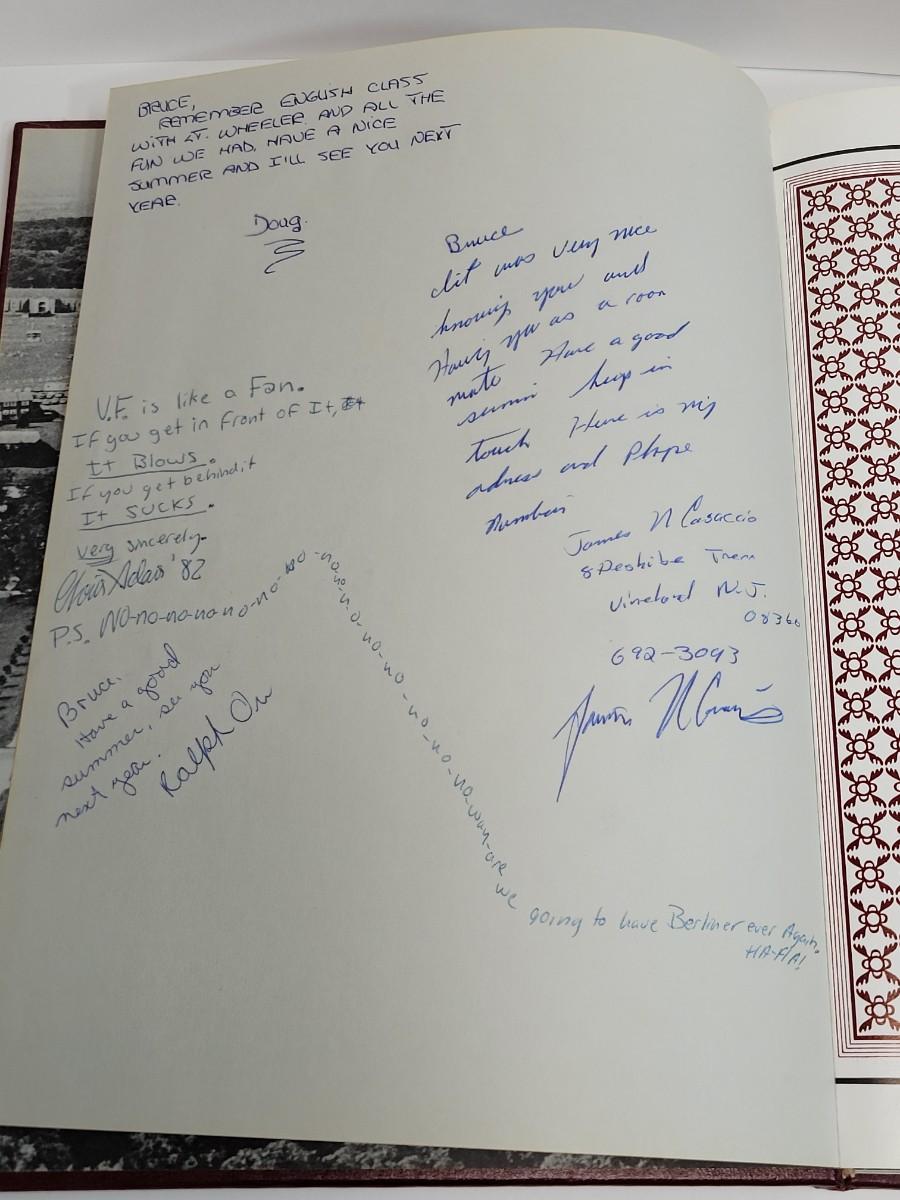 BRUCE,
REMEMBER ENGLISH CLASS
WITH LT. WHEELER AND ALL THE
FUN WE HAD. HAVE A NICE
SUMMER AND I'LL SEE YOU NEXT
YEAR.
Doug.
Bruce
it was very nice
knowing you and
Having you as a room
mate Have a good
keep in
touch Here is my
adress and Phone
Number
James N Casaccio
8
Vineland N.J.
08360
692-3093
V.F. is like a Fan.
If you get in front of It,
It Blows.
If you get behind it
It SUCKS.
Very sincerely.
Chris Adair '82
P.S. NO-no-no-no-no-no-no-no-no-no-no-no-no-no-no-no-no-no-way-are we
going to have Berliner ever Again.
HA-HA!
Bruce.
Have a good
summer, see you
next year.
Ralph